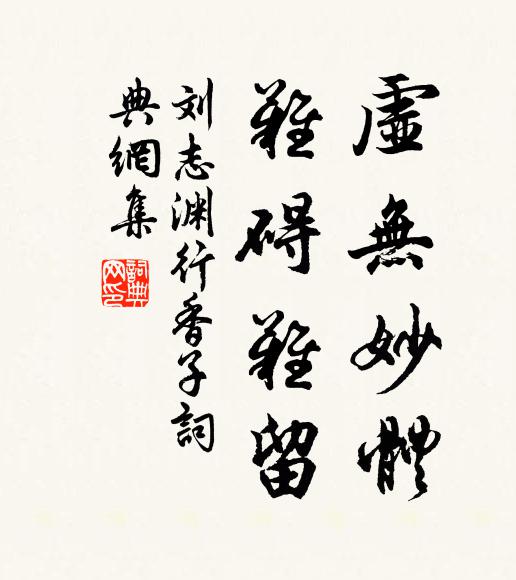 虛無妙體
難碍難留
刘志渊行香子詞
典網集
詞典网印